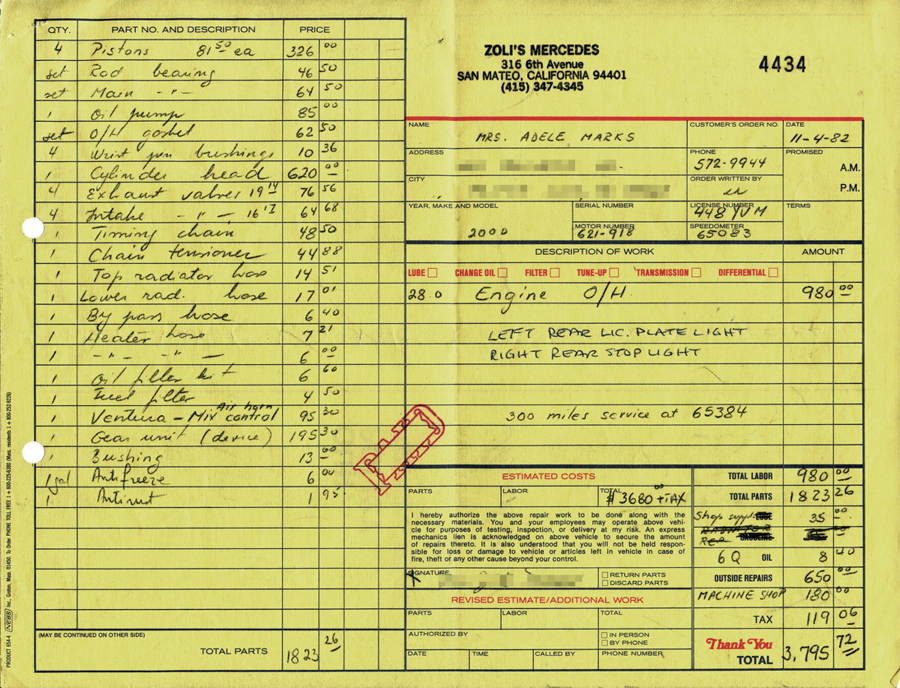 QTY. PART NO. AND DESCRIPTION PRICE
4 Pistons 81 50 ea 326 00
set Rod bearing 46 50
set Main -"- 64 50
1 Oil pump 85 00
set O/H gasket 62 50
4 Wrist pin bushings 10 36
1 Cylinder head 620 00
4 Exhaust valves 19 14 76 56
4 Intake -"- 64 68
1 Timing chain 48 50
1 Chain tensioner 44 88
1 Top radiator hose 14 51
1 Lower rad. hose 17 01
1 By pass hose 6 40
1 Heater hose 7 21
1 -"- -"- 6 00
1 Oil filter kit 6 60
1 Fuel filter 4 50
Air horn
1 Mix control 95 30
1 Gear unit (device) 195 30
1 Bushing 13 00
1 gal Antifreeze 6 00
1 Antirust 1 95
(MAY BE CONTINUED ON OTHER SIDE)
TOTAL PARTS 1823 26
ZOLI'S MERCEDES
316 6th Avenue
SAN MATEO, CALIFORNIA 94401
(415) 347-4345
4434
NAME MRS. ADELE MARKS
CUSTOMER'S ORDER NO.
DATE 11-4-82
ADDRESS
PHONE 572-9944
PROMISED
A.M.
CITY
ORDER WRITTEN BY
P.M.
YEAR, MAKE AND MODEL 200D
SERIAL NUMBER
LICENSE NUMBER 448 YVM
TERMS
MOTOR NUMBER 621-918
SPEEDOMETER 65083
DESCRIPTION OF WORK AMOUNT
LUBE CHANGE OIL FILTER TUNE-UP TRANSMISSION DIFFERENTIAL
28.0 Engine O/H 980 00
LEFT REAR LIC. PLATE LIGHT
RIGHT REAR STOP LIGHT
300 miles service at 65384
PAID
ESTIMATED COSTS
PARTS LABOR TOTAL
$3680 00 + TAX
I hereby authorize the above repair work to be done along with the
necessary materials. You and your employees may operate above vehi-
cle for purposes of testing, inspection, or delivery at my risk. An express
mechanics lien is acknowledged on above vehicle to secure the amount
of repairs thereto. It is also understood that you will not be held respon-
sible for loss or damage to vehicle or articles left in vehicle in case of
fire, theft or any other cause beyond your control.
X SIGNATURE
RETURN PARTS
DISCARD PARTS
REVISED ESTIMATE/ADDITIONAL WORK
PARTS LABOR TOTAL
AUTHORIZED BY
IN PERSON
BY PHONE
DATE TIME CALLED BY PHONE NUMBER
TOTAL LABOR 980 00
TOTAL PARTS 1823 26
Shop supplies 35 00
6 Q OIL 8 40
OUTSIDE REPAIRS 650 00
MACHINE SHOP 180 00
TAX 119 06
Thank You
TOTAL 3,795 72